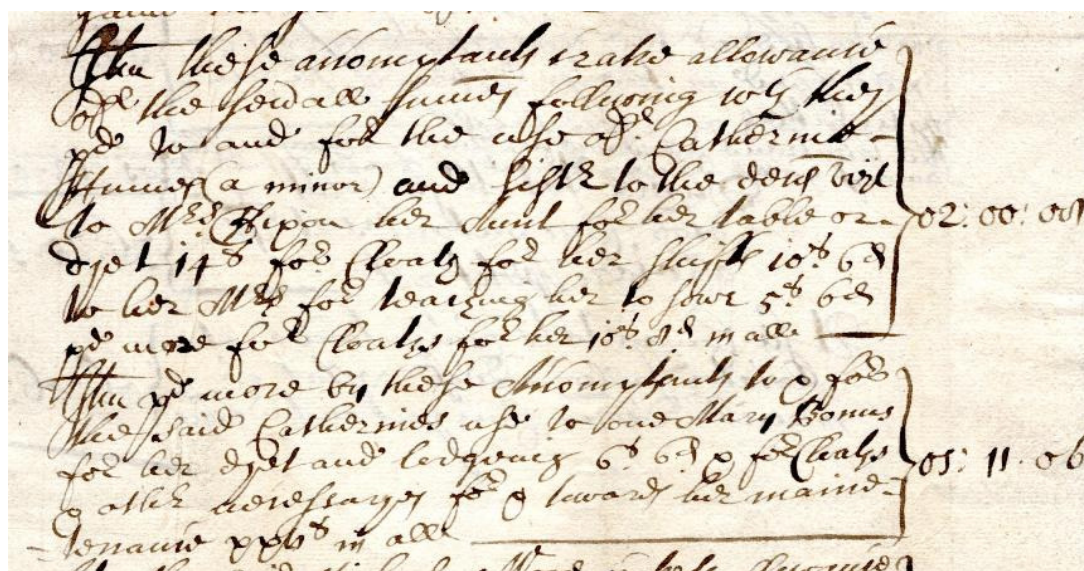 Itm these Accomptants crave allowance
of the sevall sumes followeing wch they
pd to and for the use of Catherine
(a minor) and sistr to the decd vizt
to Mrs her Aunt for her table or
dyet 14s for Cloaths for her selfe 10s 6d
to her Mrs for teaching her to sowe 5s 6d
pd more for Cloaths for her 10s in all
02: 00: 08
Itm pd more by these Accomptants to & for
the said Catherines use to one Mary Bonus
for her dyet and lodgeing 6s 6d & for Cloaths
& othr necessaryes for & towards her maine=
=tenance xxvs in all
01: 11: 06